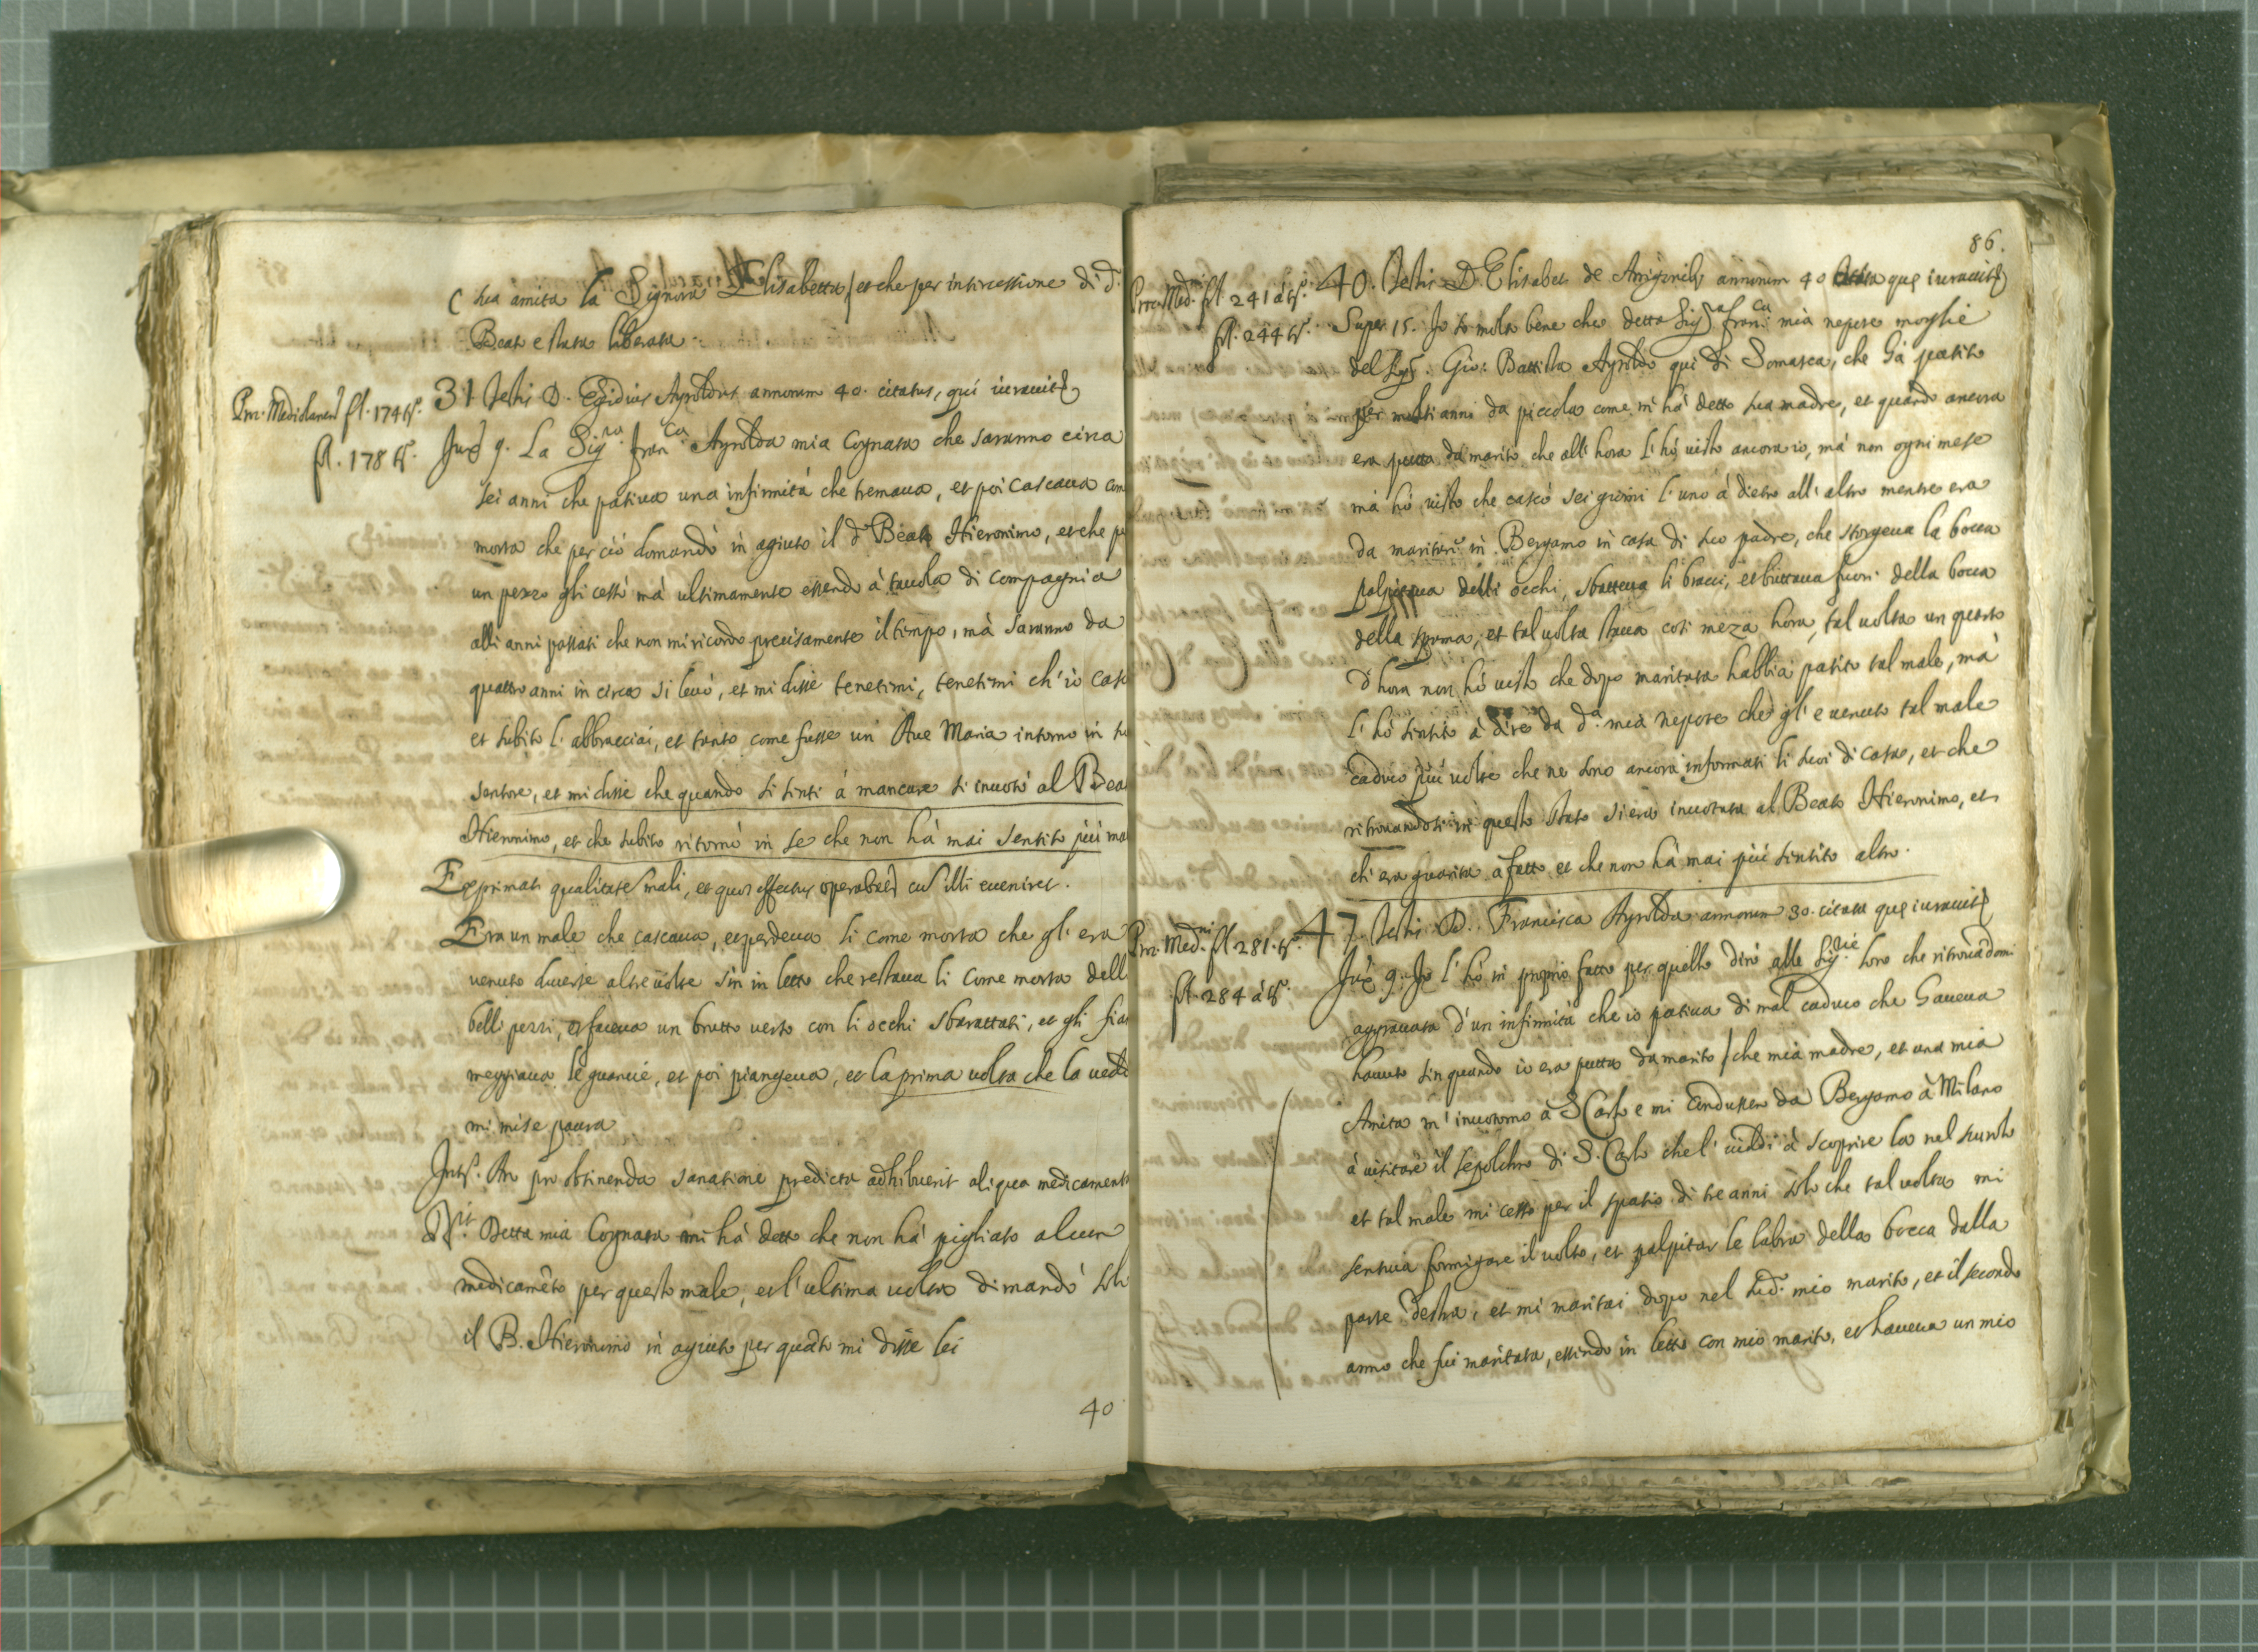 ( sua amita la Signora Elisabetta / et che per intercessione di d.
Beato e stata liberata.
Proc. Mediolanen. fl. 174 tr.
fl. 178 tr.
31 Testis D. Egidius Ayroldus annorum 40. citatus, qui iuravit
Jux. 9. La Sig.ra Fran.ca Ayrolda mia Cognata che saranno circa
sei anni che pativa una infirmità che tremava, et poi cascava com
morta che per ciò domandò in agiuto il d.º Beato Hieronimo, et che p
un pezzo gli cessò mà ultimamente essendo à tavola di compagnia
alli anni passati che non mi ricordo precisamente il tempo, mà saranno da
quattro anni in circa si levò, et mi disse tenetimi, tenetimi ch'io casc
et subito l'abbracciai, et tanto come fusse un Ave Maria intorno in su
sentore, et mi disse che quando si sentì à mancare si invotò al Bea
Hieronimo, et che subito ritornò in se che non hà mai sentito più ma
Exprimat qualitates mali, et quos effectus operabat cu illi eveniret.
Era un male che cascava, et perdeva li come morta che gl'era
venuto diverse altre volte sin in letto che restava li come morta delli
belli pezzi, et faceva un brutto verso con li occhi sbarattati, et gli fia
meggiava le guancie, et poi piangeva, et la prima volta che la vedi
mi mise paura
Intr. An pro obtinenda sanatione predicta adhibuerit aliqua medicament
Rit. Detta mia Cognata mi hà detto che non hà pigliato alcun
medicamẽto per questo male, et l'ultima volta dimandò solo
il B. Hieronimo in agiuto per quãto mi disse lei
40
86.
Proc. Med.ni fl. 241 à tr.
fl. 244 tr.
40. Testis D. Elisabet de Arrigonibus annorum 40 que iuravit
Super 15. Io so molto bene che detta Sig.ra Fran.ca mia nepote moglie
del Sig.r Gio: Battista Ayroldo qui di Somasca, che hà patito
per molti anni da piccola come m'hà detto sua madre, et quando ancora
era putta da marito che all'hora l'hò visto ancora io, mà non ogni mese
mà hò visto che cascò sei giorni l'uno à dietro all'altro mentre era
da maritare in Bergamo in casa di suo padre, che storgeva la bocca
palpitava delli occhi, sbatteva li bracci, et buttava fuori della bocca
della spuma, et tal volta stava così meza hora, tal volta un quarto
d'hora non hò visto che dopo maritata habbia patito tal male, mà
l'hò sentito à dire da d.a mia nepote che gl'e venuto tal male
caduco più volte che ne sono ancora informati li suoi di casa, et che
ritrovandosi in questo stato si era invotata al Beato Hieronimo, et
ch'era guarita à fatto et che non hà mai più sentito altro.
Proc. Med.ni fl. 281. tr.
fl. 284 à tr.
47. Testis D. Francisca Ayrolda annorum 30. citata que iuravit
Jux. 9. Io l'hò in proprio fatto per quello dirò alle Sig.rie loro che ritrovãdomi
aggravata d'un infirmità che io pativa di mal caduco che haveva
havuto sin quando io era putta da marito / che mia madre, et una mia
Amita m'invotorno à S. Carlo e mi condussero da Bergamo à Milano
à visitare il sepolchro di S. Carlo che l'viddi à scoprire la nel scurolo
et tal male mi cessò per il spatio di tre anni solo che tal volta mi
sentiva formigare il volto, et palpitar le labra della bocca dalla
parte destra, et mi maritai dopo nel sud.o mio marito, et il secondo
anno che fui maritata, essendo in letto con mio marito, et haveva un mio